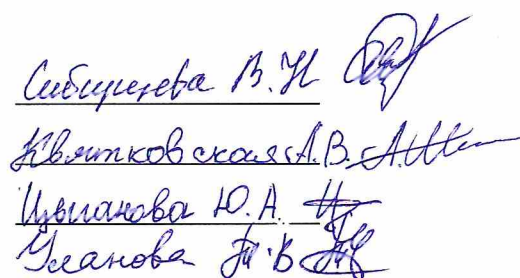 В.Н
Квятковская А.В.
Цыганова Ю.А.
Уланова Т.В